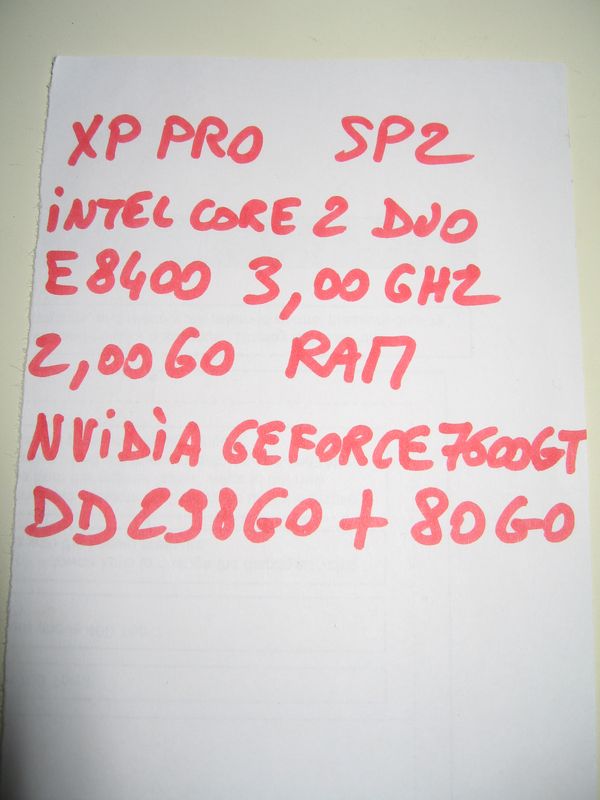 XP PRO SP2
iNTEL CORE 2 DUO
E8400 3,00 GHZ
2,00GO RAM
NViDiA GEFORCE 7600GT
DD 298GO + 80GO